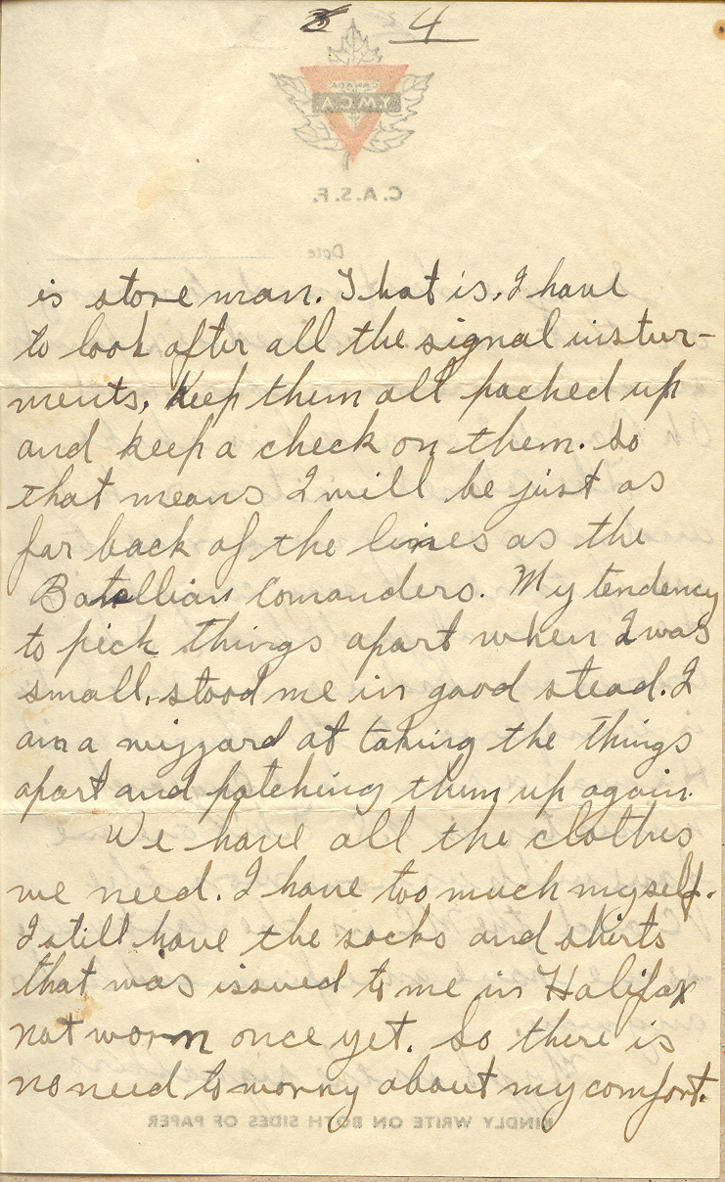 4
CANADA
Y.M.C.A.
C.A.S.F.
Date
is store man. That is, I have
to look after all the signal instur-
ments, Keep them all packed up
and keep a check on them. So
that means I will be just as
far back of the lines as the
Batallian Comanders. My tendency
to pick things apart when I was
small, stood me in good stead. I
am a wizzard at taking the things
apart and patching them up again.
We have all the clothes
we need. I have too much myself.
I still have the socks and shirts
that was issued to me in Halifax
not worn once yet. So there is
no need to worry about my comfort.
KINDLY WRITE ON BOTH SIDES OF PAPER